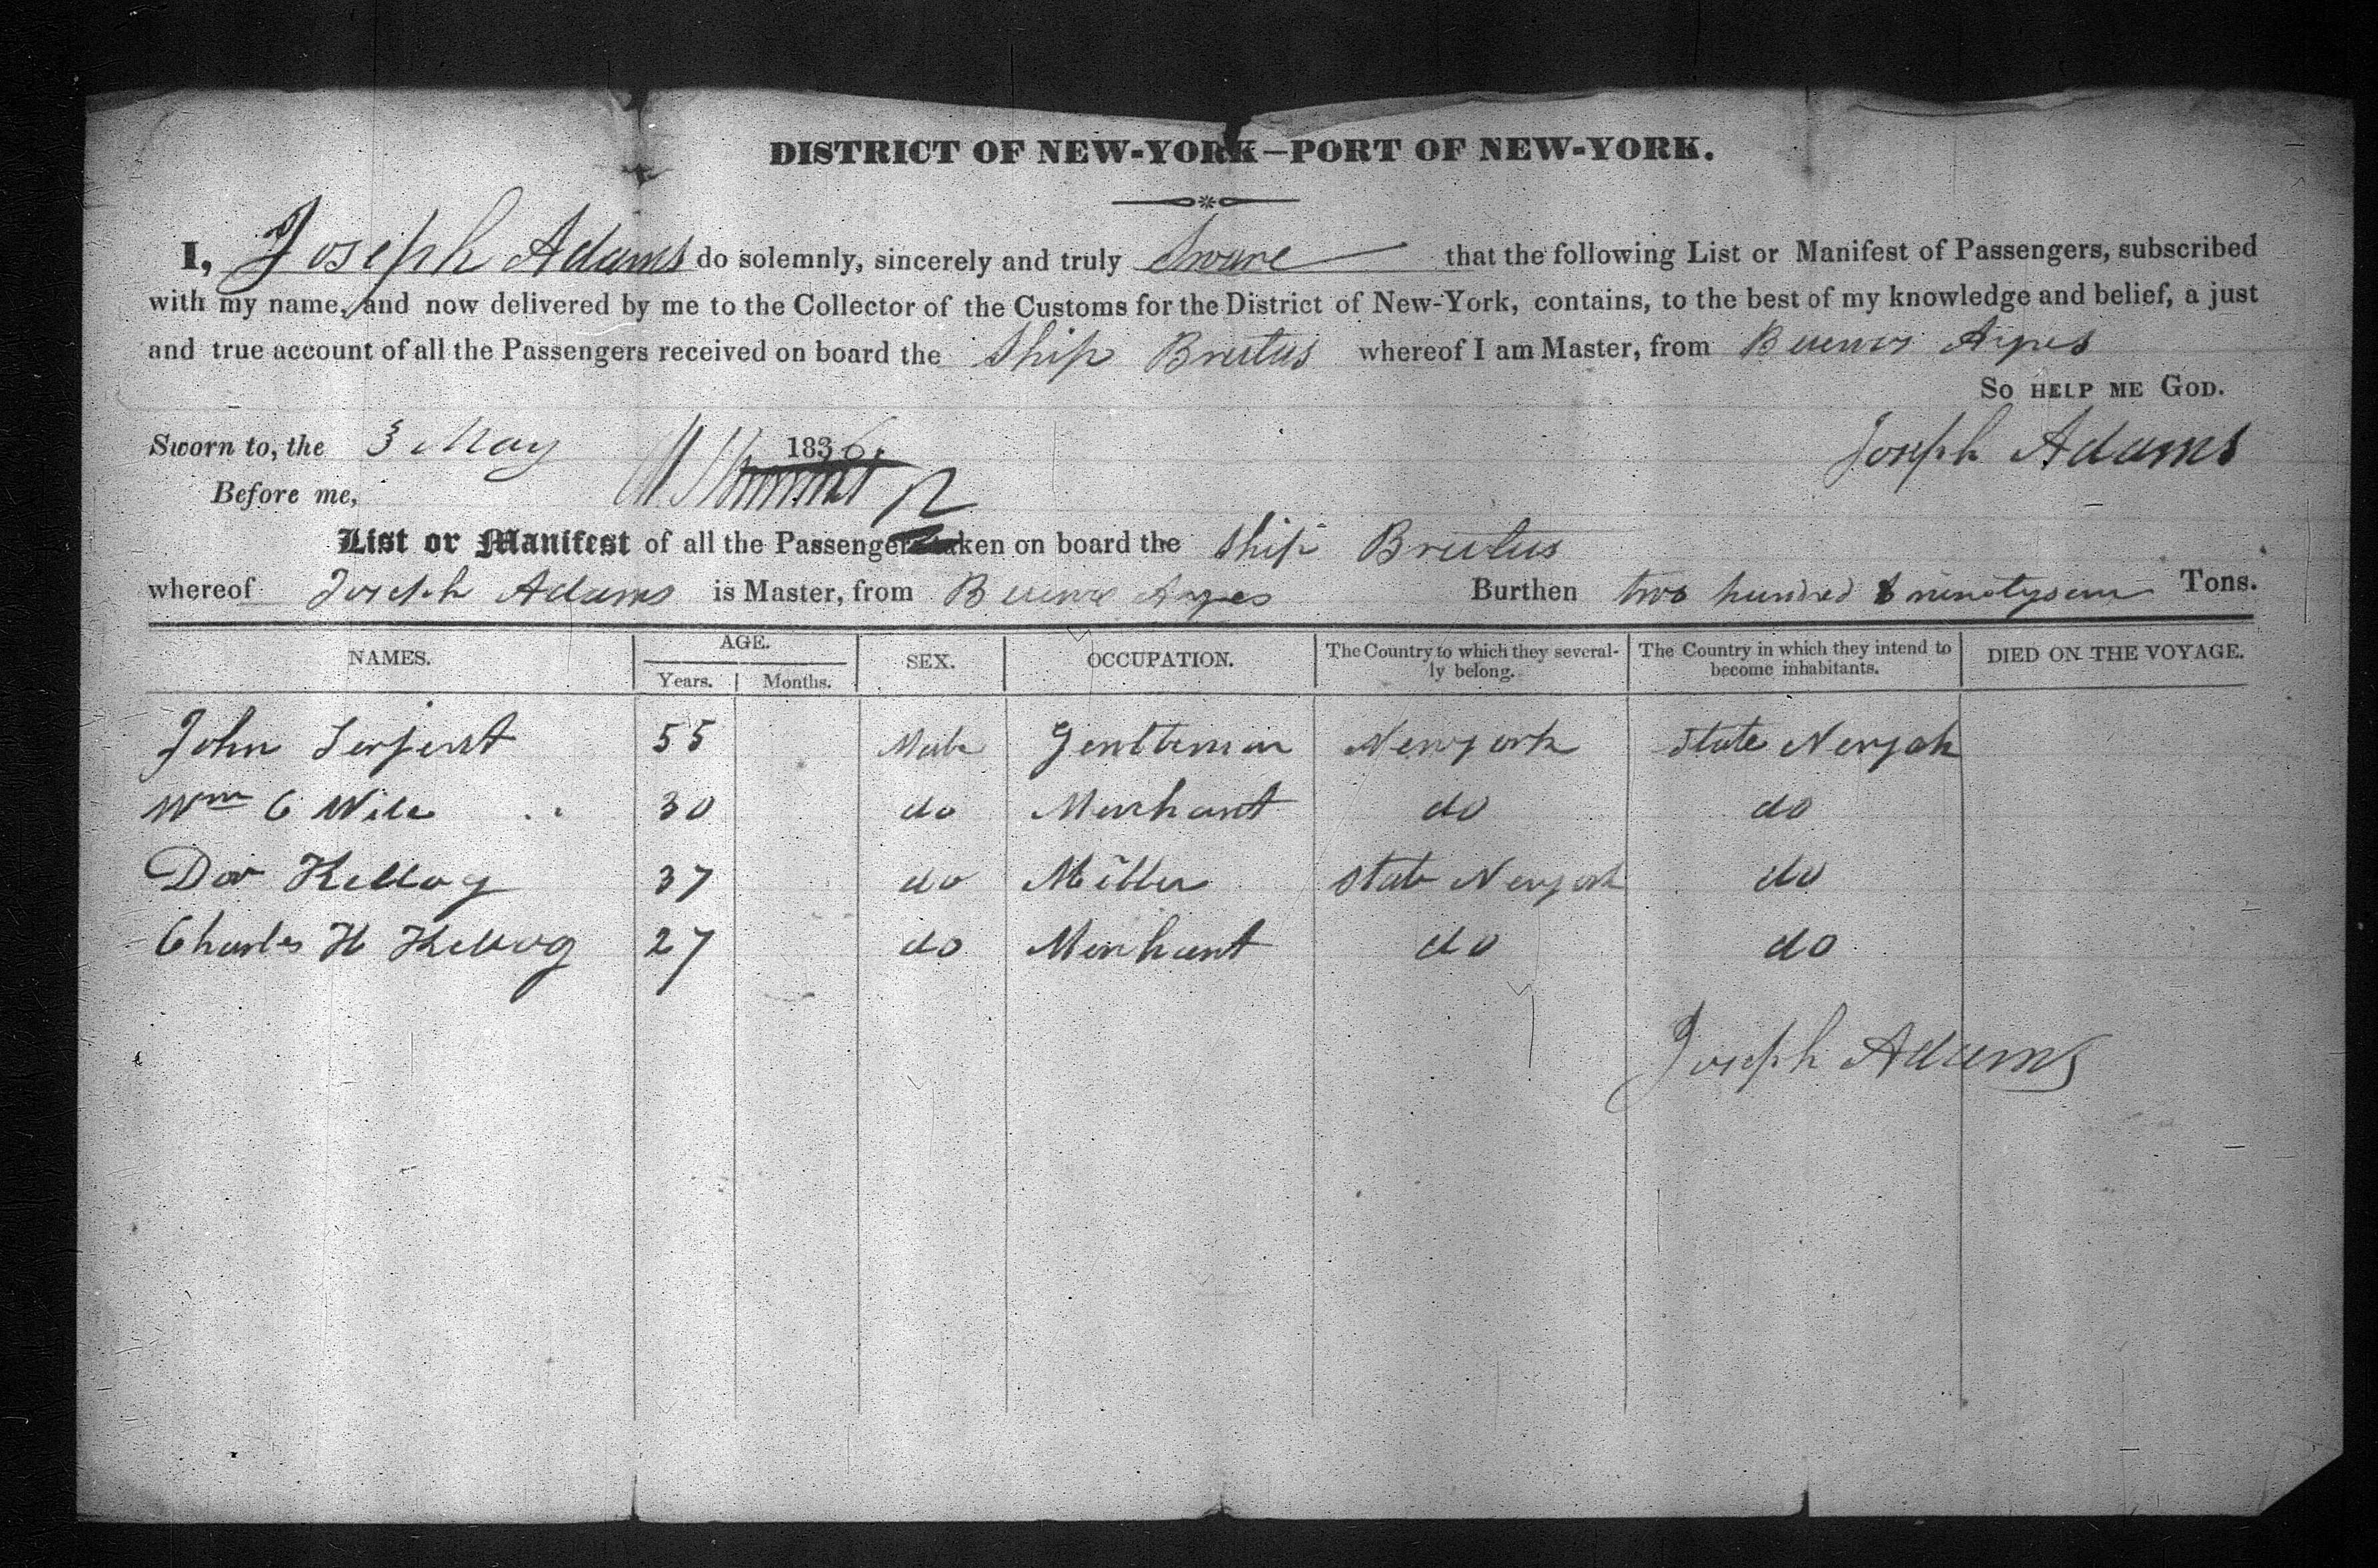 DISTRICT OF NEW-YORK—PORT OF NEW-YORK.
I, Joseph Adams do solemnly, sincerely and truly Sware that the following List or Manifest of Passengers, subscribed
with my name, and now delivered by me to the Collector of the Customs for the District of New-York, contains, to the best of my knowledge and belief, a just
and true account of all the Passengers received on board the Ship Brutus whereof I am Master, from Buenos Ayres
So HELP ME GOD.
Sworn to, the 3 May 1836. Joseph Adams
Before me,
List or Manifest of all the Passengers taken on board the Ship Brutus
whereof Joseph Adams is Master, from Buenos Ayres Burthen two hundred & Tons.
NAMES. AGE. Years. Months. SEX. OCCUPATION. The Country to which they severally belong. The Country in which they intend to become inhabitants. DIED ON THE VOYAGE.
John 55 Male Gentleman Newyork State Newyork
Wm C 30 do Merchant do do
Kellog 37 do Miller State Newyork do
Charles H Kellog 27 do Merchant do do
Joseph Adams